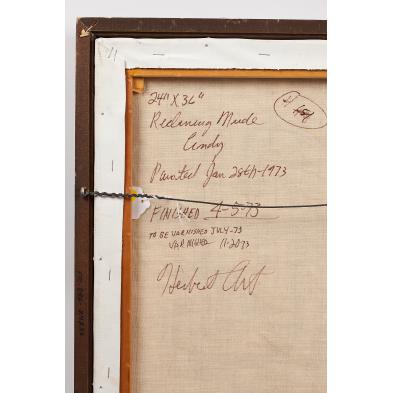 24" X 36"
Reclining Nude
Cindy
Painted Jan 28th-1973
FINISHED 4-5-73
TO BE VARNISHED JULY-73
VARNISHED 11-2073
Herbert Art